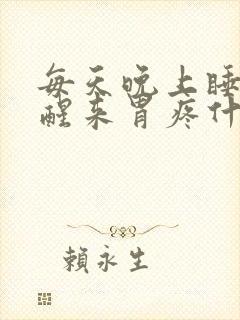 每天晚上睡
醒来胃疼什
賴永生